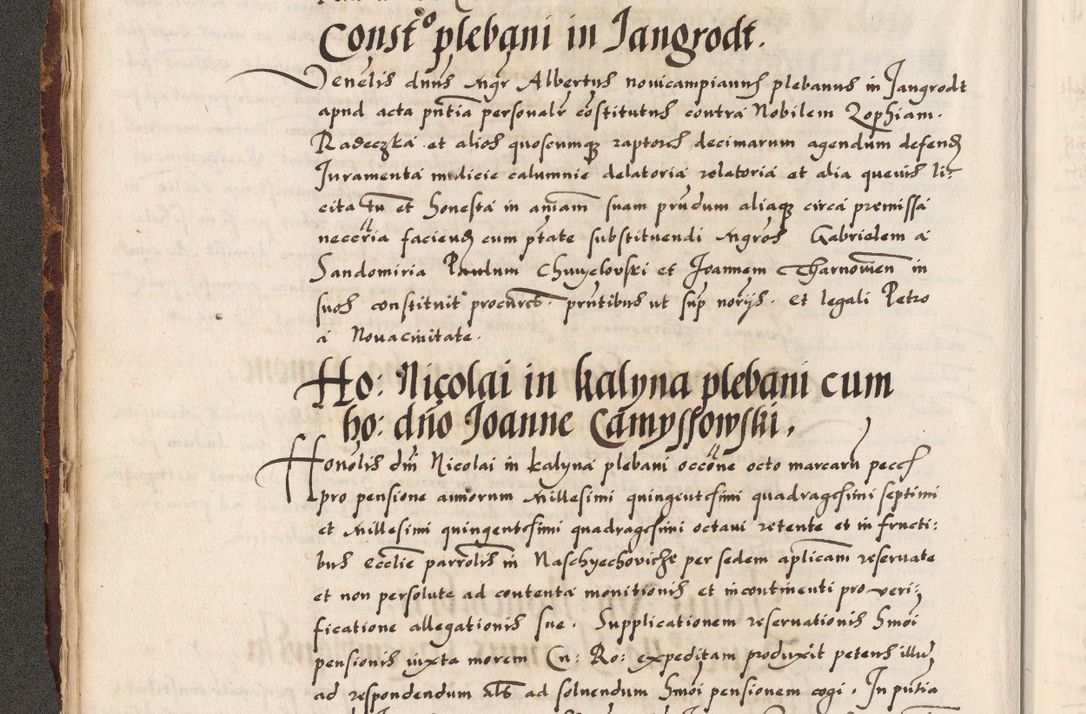 Constᵒ plebani in Jangrodt.
Venelis dnus Mgr Albertus novicampianus plebanus in Jangrodt
apud acta pntia personalr costitutus contra Nobilem Zophiam
Radeczka et alios quoscumque raptores decimarum agendum defendend
Juramenta malicie calumnie delatoria relatoria et alia quevis li-
cita tn et honesta in aniam suam prndum aliaque circa premissa
neccria faciend cum ptate substituendi Mgros Gabrielem a
Sandomiria Paulum Chwyelovski et Joannem Tharnovien in
suos constituit procures. prntibus ut sup norijs. et legali Petro
a Novacivitate.
Ho: Nicolai in kalyna plebani cum
ho: dno Joanne Camyssowski.
Honolis dni Nicolai in kalyna plebani occone octo marcaru pecce
pro pensione annorum Millesimi quingentesimi quadragesimi septimi
et Millesimi quingentesimi quadragesimi octavi retente et in fructi:
bus ecclie parrolis in Naschyechoviche per sedem aplicam reservate
et non persolute ad contenta monitionis et incontinenti pro veri:
ficatione allegationis sue. Supplicationem reservationis hmoi
pensionis iuxta morem Cu: Ro: expeditam produxit petens illu
ad respondendum als ad solvendum hmoi pensionem cogi. In pntia